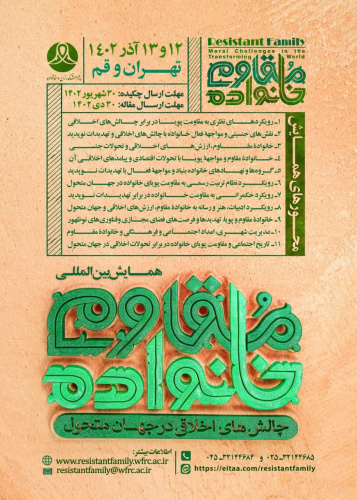 ۱۲ و ۱۳ آذر ۱۴۰۲
تهران و قم
مهلت ارسال چکیده: ۳۰ شهریور ۱۴۰۲
مهلت ارسال مقاله: ۳۰ دی ۱۴۰۲
Resistant Family
Moral Challenges in the
Transforming World
خانواده مقاوم
محورهای همایش
۱- رویکردهای نظری به مقاومت پویا در برابر چالش‌های اخلاقی
۲- نقش‌های جنسیتی و مواجهه فعال خانواده با چالش‌های اخلاقی و تهدیدات نوپدید
۳- خانواده مقاوم، ارزش‌های اخلاقی و تحولات جنسی
۴- خانواده مقاوم و مواجهه پویا با تحولات اقتصادی و پیامدهای اخلاقی آن
۵- گروه‌ها و نهادهای خانواده بنیاد و مواجهه فعال با تهدیدات نوپدید
۶- رویکرد نظام تربیت رسمی به مقاومت پویای خانواده در جهان متحول
۷- رویکرد حکمرانی به مقاومت خانواده در برابر تهدیدات نوپدید
۸- رویکرد ادبیات، هنر و رسانه به خانواده مقاوم، ارزش‌های اخلاقی و جهان متحول
۹- خانواده مقاوم و پویا، تهدیدها و فرصت‌های فضای مجازی و فناوری‌های نوظهور
۱۰- مدیریت شهری، امداد اجتماعی و فرهنگی و خانواده مقاوم
۱۱- تاریخ اجتماعی و مقاومت پویای خانواده در برابر تحولات اخلاقی در جهان متحول
همایش بین‌المللی
خانواده مقاوم
چالش‌های اخلاقی در جهان متحول
اطلاعات بیشتر:
www.resistantfamily.wfrc.ac.ir
resistantfamily@wfrc.ac.ir
۰۲۵-۳۲۱۴۴۶۸۵ و ۰۲۵-۳۲۱۴۴۶۸۳
https://eitaa.com/resistantfamily